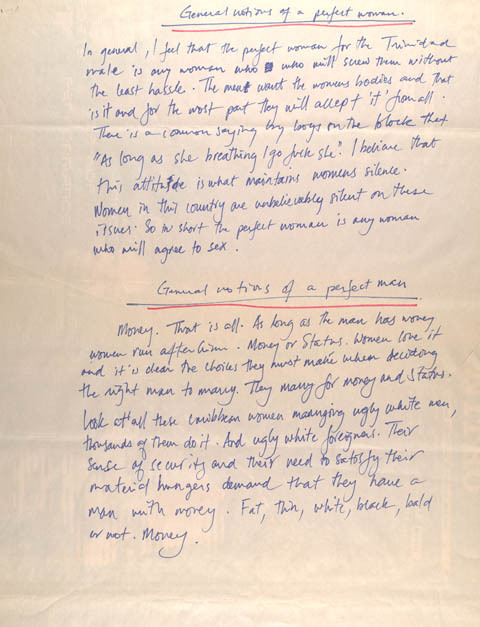 General notions of a perfect woman.
In general, I feel that the perfect woman for the Trinidad
male is any woman who who will screw them without
the least hassle. The men want the womens bodies and that
is it and for the most part they will accept 'it' from all.
There is a common saying by boys on the block that
"As long as she breathing I go fuck she". I believe that
this attitude is what maintains womens silence.
Women in this country are unbelievably silent on these
issues. So in short the perfect woman is any woman
who will agree to sex.
General notions of a perfect man
Money. That is all. As long as the man has money
women run after him. Money or Status. Women love it
and it is clear the choices they must make when deciding
the right man to marry. They marry for money and Status.
Look at all these Caribbean women marrying ugly white men,
thousands of them do it. And ugly white foreigners. Their
sense of security and their need to satisfy their
material hungers demand that they have a
man with money. Fat, thin, white, black, bald
or not. Money.